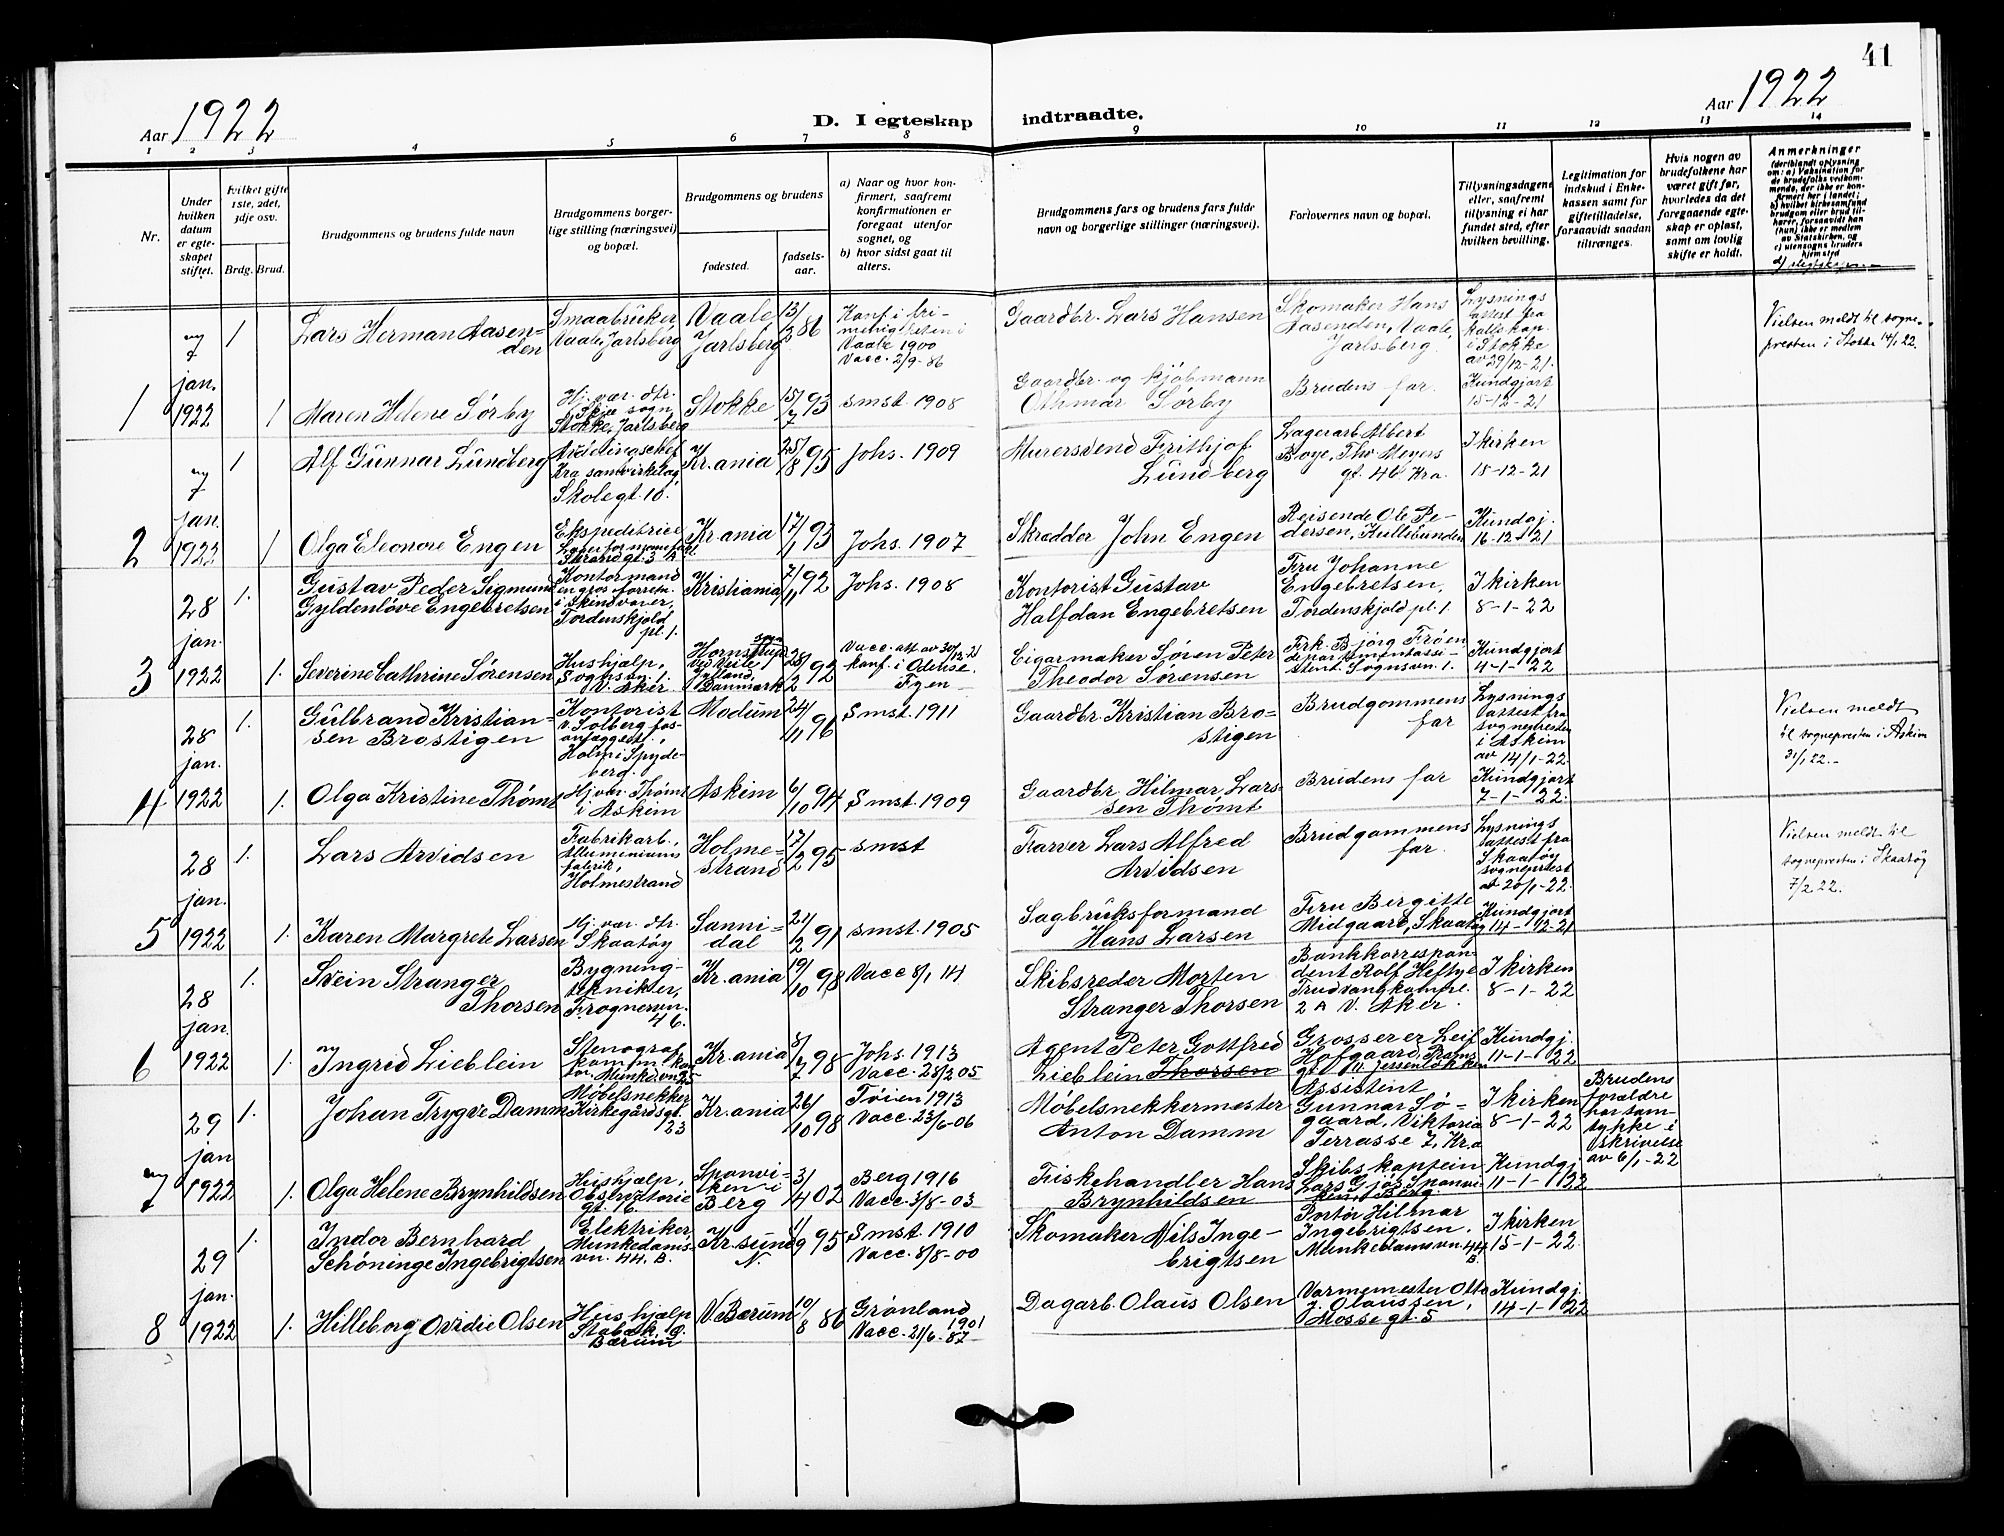 41
Aar 1922
D. I egteskap
indtraadte.
Aar 1922
1 2 3 4 5 6 7 8 9 10 11 12 13 14
Nr.
Under
hvilken
datum
er egte-
skapet
stiftet.
Hvilket gifte
1ste, 2det,
3dje osv.
Brdg. Brud.
Brudgommens og brudens fulde navn
Brudgommens borger-
lige stilling (næringsvei)
og bopæl.
Brudgommens og brudens
fødested.
fødsels-
aar.
a) Naar og hvor kon-
firmert, saafremt
konfirmationen er
foregaat utenfor
sognet, og
b) hvor sidst gaat til
alters.
Brudgommens fars og brudens fars fulde
navn og borgerlige stillinger (næringsvei).
Forlovernes navn og bopæl.
Tillysningsdagene
eller, saafremt
tillysning ei har
fundet sted, efter
hvilken bevilling.
Legitimation for
indskud i Enke-
kassen samt for
giftetilladelse,
forsaavidt saadan
tiltrænges.
Hvis nogen av
brudefolkene har
været gift før,
hvorledes da det
foregaaende egte-
skap er opløst,
samt om lovlig
skifte er holdt.
Anmerkninger
(deriblandt oplysning
om: a) Vaksination for
de brudefolks vedkom-
mende, der ikke er kon-
firmert her i landet;
b) hvilket kirkesamfund
brudgom eller brud til-
hører, forsaavidt han
(hun) ikke er medlem
av Statskirken, og
c) utensogns bruders
hjemsted
1
7
jan.
1922
1
Lars Herman Aasen-
den
Smaabruker,
Vaale, Jarlsberg
Vaale
Jarlsberg
13/3 86
Konf. i fri-
menigheten i
Vaale 1900
Vacc. 2/9-86
Gaardbr. Lars Hansen
Skomaker Hans
Aasenden, Vaale,
Jarlsberg.
Lysnings
attest fra
i Stokke
av 29/12-21.
Vielsen meldt til sogne-
presten i Stokke 14/1 22.
1
Maren Helene Sørby
Hj. vær. dtr.
Skjee sogn,
Stokke, Jarlsberg
Stokke
15/7 93
smst. 1908
Gaardbr. og kjøbmann
Othmar Sørby
Brudens far.
Kundgjort
15-12-21
2
7
jan.
1922
1
Alf Gunnar Lundberg
Avdelingschef
Kra samvirkelag,
Skolegt. 10.
Kr.ania
25/8 95
Johs. 1909
Murersvend Frithjof
Lundberg
Lagerarb. Albert
Boye, Thv. Meyers
gt. 46. Kra.
I kirken
15-12-21
1
Olga Eleonore Engen
Ekspeditrice
Kr.ania
17/1 93
Johs. 1907
Skrædder John Engen
Reisende Ole Pe-
dersen, Kullebunden
Kundgj.
16-12-21
3
28
jan.
1922
1.
Gustav Peder Sigmund
Gyldenløve Engebretsen
Kontormand
en gros forretn.
i skindvarer,
Tordenskjold
pl. 1.
Kristiania
7/11 92
Johs. 1908
Kontorist Gustav
Halfdan Engebretsen
Fru Johanne
Engebretsen,
Tordenskjold pl. 1.
I kirken
8-1-22
1.
Severine Cathrine Sørensen
Hushjælp,
Sognsvn. 1.
V. Aker
Hornstrup
ved Veile,
Jylland,
Danmark
28/2 92
Vacc. att. av 30/12-21
konf. i Odense
Fyen
Cigarmaker Søren Peter
Theodor Sørensen
Frk. Bjørg Frøen
departementassi-
stent. Sognsvn. 1.
Kundgjort
4-1-22
4
28
jan.
1922
1.
Gulbrand Kristian-
sen Brostigen
Kontorist
v. Solbergfos-
anlægget,
Holm i Spyde-
berg.
Modum
24/11 96
Smst. 1911
Gaardbr. Kristian Bro-
stigen
Brudgommens
far
Lysnings
attest fra
sognepresten
i Askim
av 14/1-22.
Vielsen meldt
til sognepresten i Askim
31/1 22.-
1.
Olga Kristine Thømt
Hj. vær. Thømt
i Askim
Askim
6/10 94
Smst. 1909
Gaardbr. Hilmar Lars-
sen Thømt
Brudens far
Kundgjort
7-1-22.
5
28
jan.
1922
1.
Lars Arvidsen
Fabrikarb.,
Alluminiums
fabrik,
Holmestrand
Holme-
strand
17/2 95
smst
Farver Lars Alfred
Arvidsen
Brudgommens
far.
Lysnings
attest fra
Skaatøy
sogneprest
av 20/1-22.
Vielsen meldt til
sognepresten i Skaatøy
7/2 22.
1.
Karen Margrete Larsen
Hj. vær. dtr.
Skaatøy
Sanni-
dal
21/2 91
smst. 1905
Sagbruksformand
Hans Larsen
Fru Birgitte
Midgaard, Skaatøy
Kundgjort
14-12-21
6
28
jan.
1922
1.
Svein Stranger
Thorsen
Bygning-
tekniker,
Frognervn.
46.
Kr.ania
19/10 98
Vacc 8/1 14
Skibsreder Morten
Stranger Thorsen
Bankkorrespon-
dent Rolf Heftye
2 A V. Aker.
I kirken
8-1-22
1.
Ingrid Lieblein
Stenograf
Kr.ania
8/7 98
Johs. 1913
Vacc. 28/2 05
Agent Peter Gottfred
Lieblein Thorsen
Grosserer Leif
Hofgaard,
Kundgj.
11-1-22
7
29
jan
1922
1.
Johan Trygve Damm
Møbelsnekker
Kirkegårdsgt.
23
Kr.ania
26/10 98
Tøien 1913
Vacc. 23/6-06
Møbelsnekkermester
Anton Damm
Assistent
Gunnar Sø-
gaard, Viktoria
Terrasse 7, Kra
I kirken
8-1-22
Brudens
forældre
har sam-
tykke i
skrivelse
av 6/1-22
1.
Olga Helene Brynhildsen
Hushjælp,
Observatorie
gt. 16.
Sponvi-
ken i
Berg
3/4 02
Berg 1916
Vacc. 3/8-03
Fiskehandler Hans
Brynhildsen
Skibskaptein
Lars Gjøs, Sponvi-
ken, Berg
Kundgj.
11-1-22
8
29
jan.
1922
1.
Indor Bernhard
Schøninge Ingebrigtsen
Elektriker
Munkedams-
vn. 44. B.
Kr.sund
N.
1/9 95
Smst 1910
Vacc. 8/8-00
Skomaker Nils Inge-
brigtsen
Portør Hilmar
Ingebrigtsen,
Munkedamsvn. 44
B.
I kirken
15-1-22.
1.
Hilleborg Ovidie Olsen
Hushjælp
Stabæk,
Bærum
V. Bærum
10/8 86
Grønland
1901
Vacc. 21/6-87
Dagarb. Olaus Olsen
Varmemester Otto
J. Olaussen,
Mosse gt. 5
Kundgj.
14-1-22